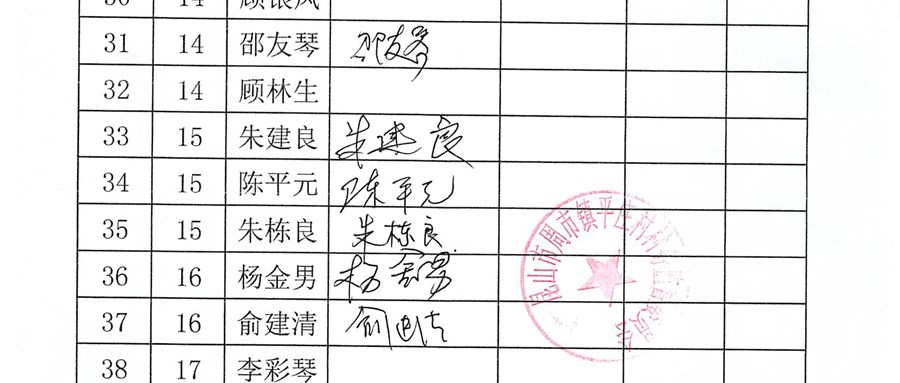 31 14 邵友琴 邵友琴
32 14 顾林生
33 15 朱建良 朱建良
34 15 陈平元 陈平元
35 15 朱栋良 朱栋良
36 16 杨金男 杨金男
37 16 俞建清 俞建清
38 17 李彩琴
昆山市周市镇平庄村村务监督委员会